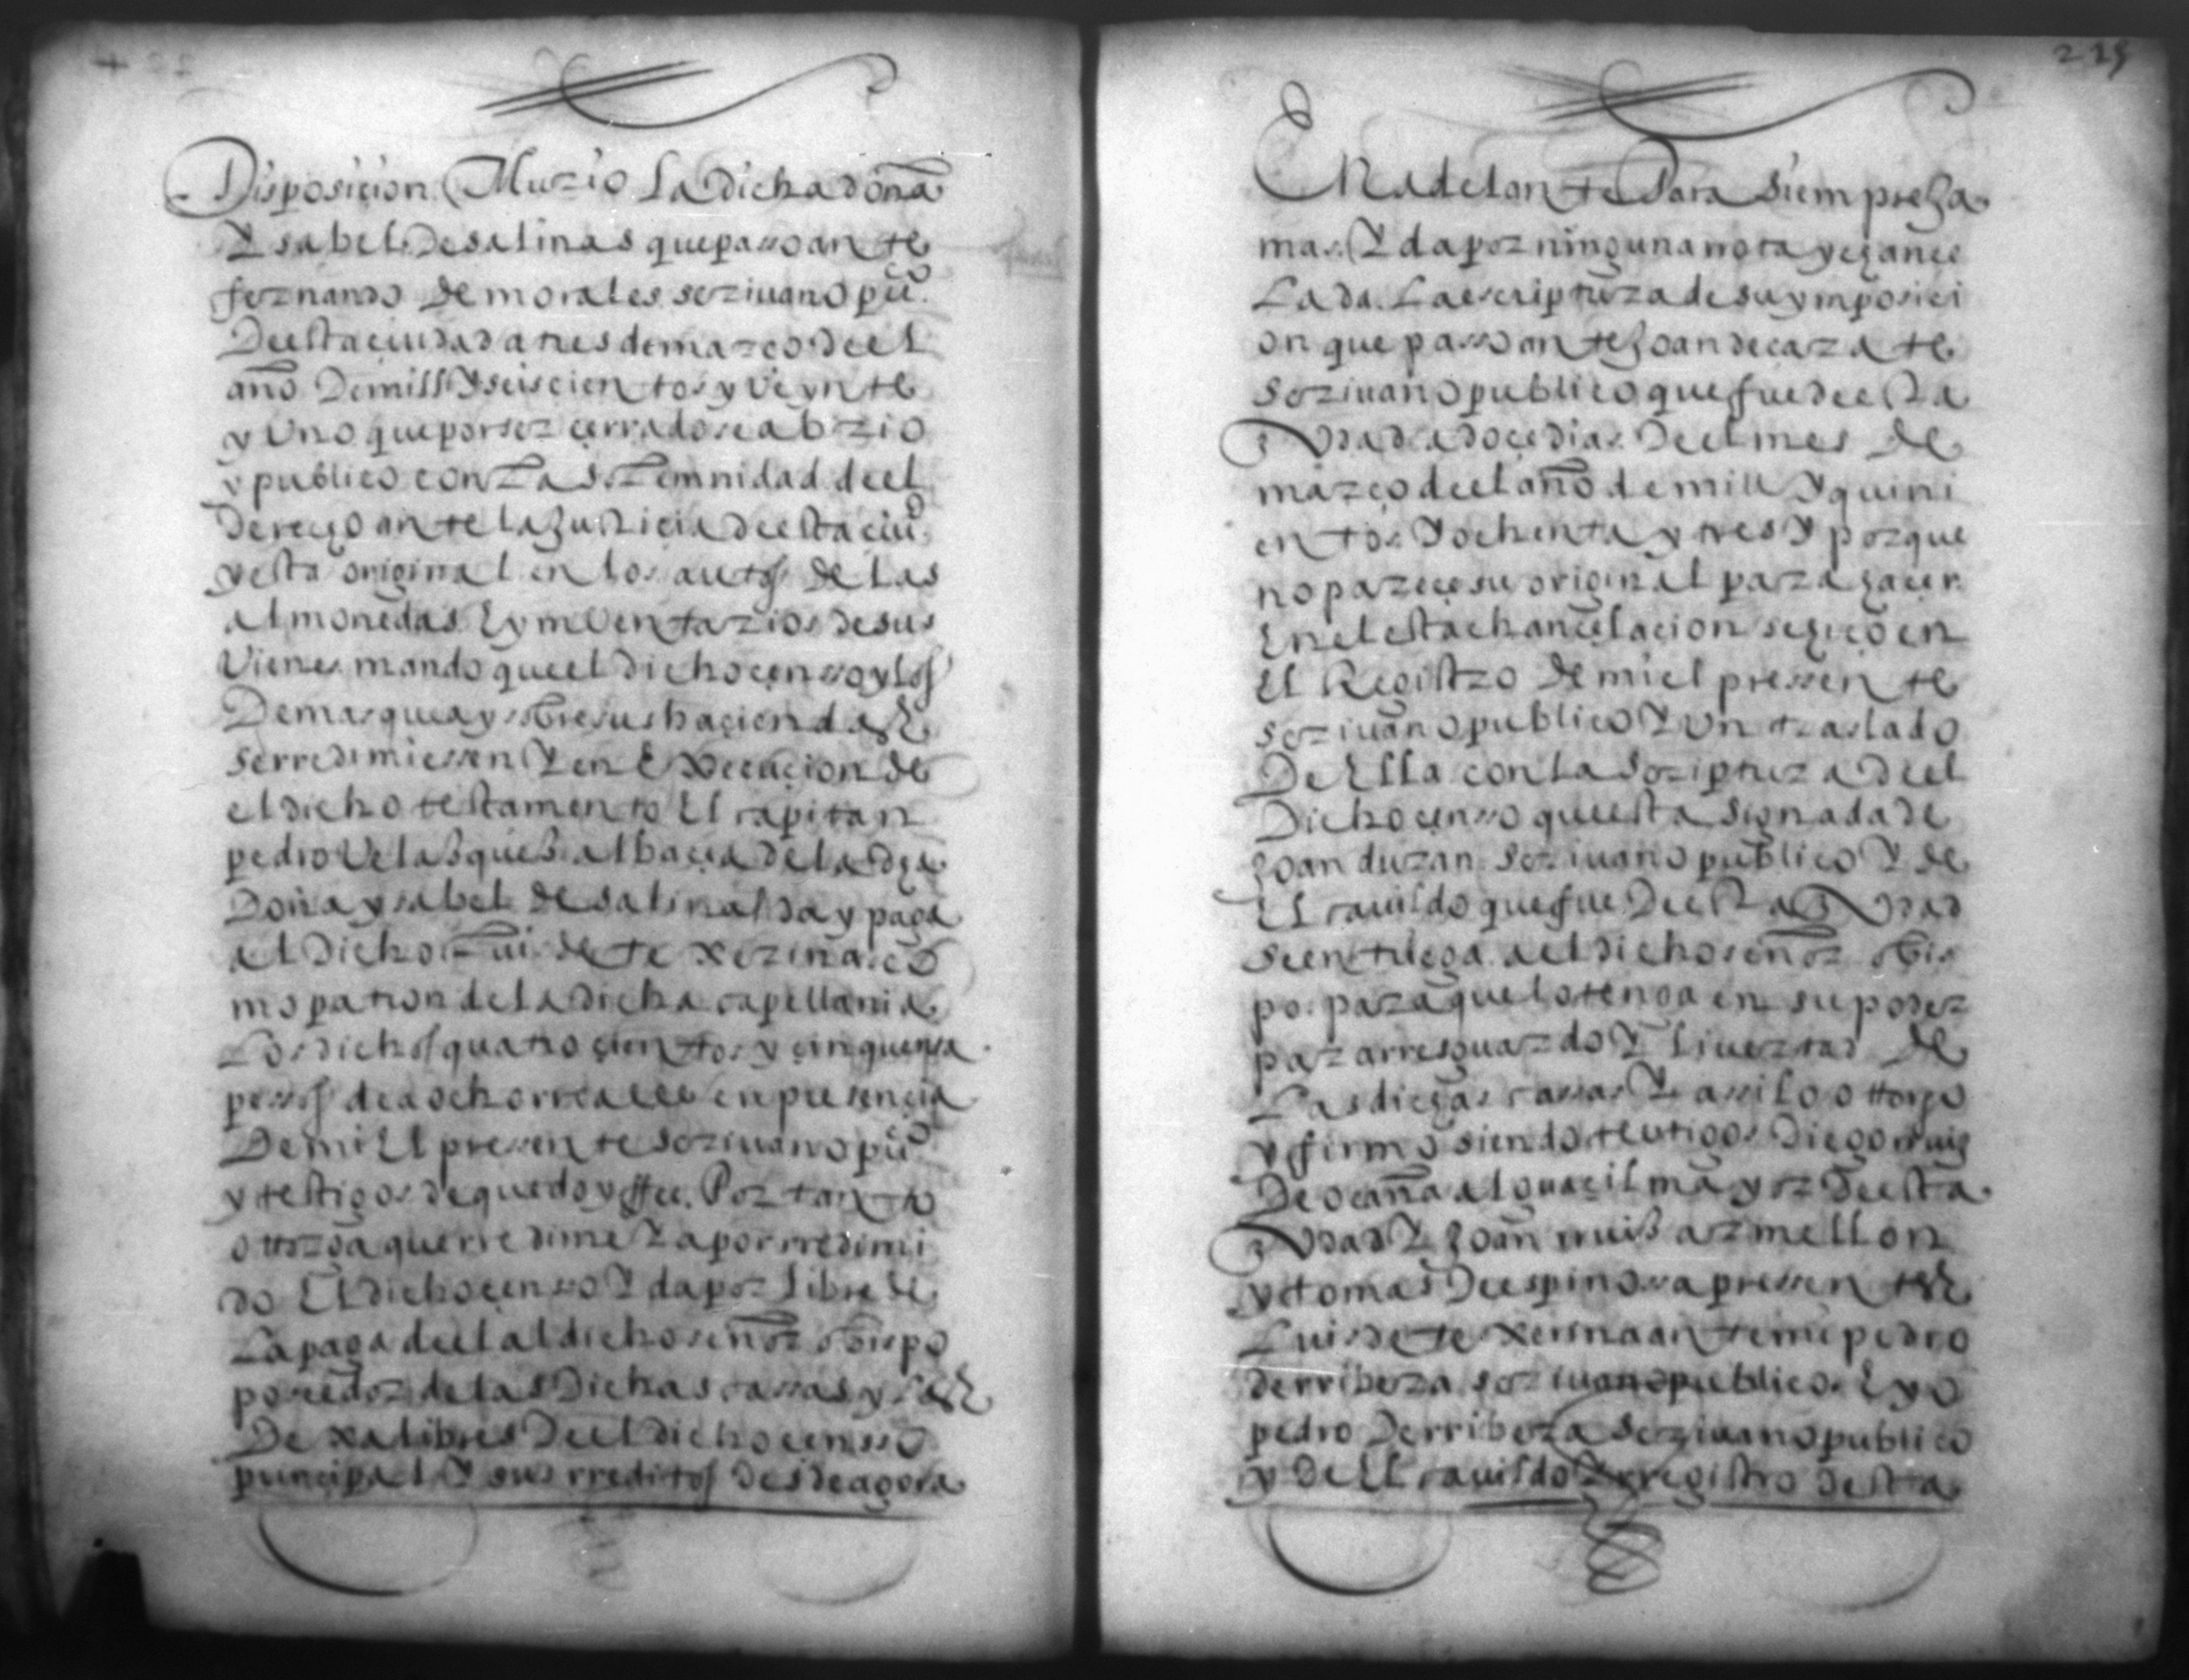 Disposicion Murio La Dicha doña
Ysabel De salinas que passo an te
fernando De morales scriuano puco.
De esta ciudad a tres de março de el
año De mill Y seiscien tos y veyn te
y Uno que por ser cerrado se abrio
y publico con la solemnidad de el
derecho an te la Justicia de esta ciud.
y esta original en los autos De Las
almonedas E ymventarios de sus
Vienes mando que el dicho censso y los
Demas que ay sobre sus haciendas
se rredimiessen Y en Execucion de
el dicho testamen to El capitan
pedro Velasques albacea de la dha
Doña ysabel De salinas da y paga
al Dicho lui. de te xerina co
mo patron de la dicha capellania
Los dichos quatrocien tos y cinquenta
pessos de a ocho rreales en presencia
De mi El pressen te scriuano puco
y testigos de que doy ffee. Por tan to
ottorga que rredime Y a por rredimi
do El dicho censso Y da por libre de
La paga de el al dicho señor obispo
posedor de las Dichas cassas y las
Dexa libres De el dicho censso
principal Y sus rreditos desde agora
215
En adelan te Para siempre Ja
mas Y da por ninguna rota y chance
Lada La escriptura de su ymposici
on que passo an te Joan de çara te
scriuano publico que fue de esta
ciudad a doçe dias De el mes de
março de el año de mill Y quini
en tos Y ochenta y tres Y porque
no parece su original para haçer
En el esta chancelacion se hiço en
El Registro De mi el pressen te
scriuano publico Y Un traslado
De Ella con La scriptura de el
Dicho censso que esta signada de
Joan duran scriuano publico Y de
El cauildo que fue De esta ciudad
se en trega al dicho señor obis
po para que lo tenga en su poder
para rresguardo Y livertad de
Las dichas cassas Y assi lo ottorgo
y firmo siendo testigos Diego rruiz
De ocaña alguacil mayor De esta
ciudad Y Joan rruis armellon
y tomas De espinossa pressen tes
Luis de te xerina an te mi pedro
de rribera scriuano publico. E yo
pedro De rribera scriuano publico
y de El cauildo Y rregistro desta